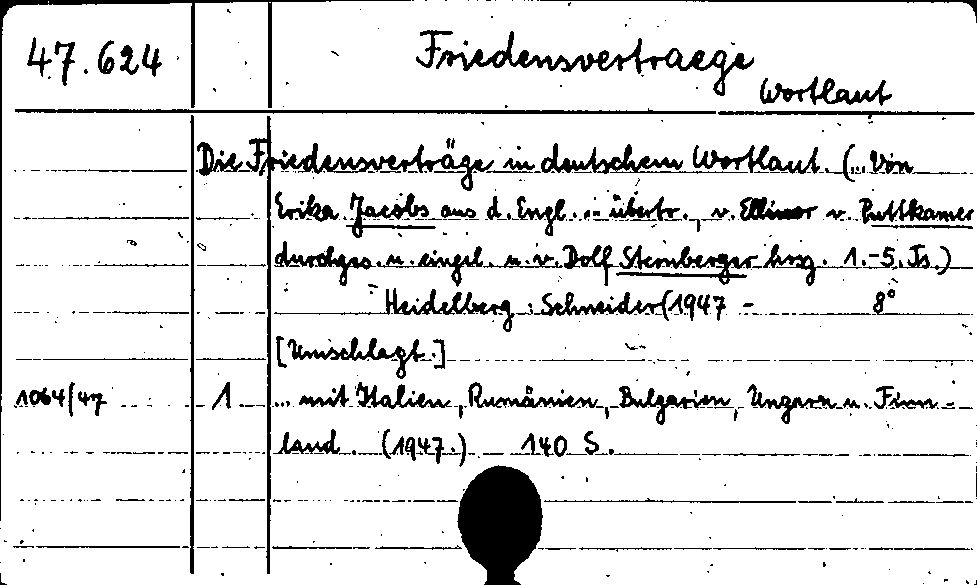 47.624 Friedensvertraege
Wortlaut
Die Friedensverträge in deutschem Wortlaut. (... Von
Erika Jacobs aus d. Engl. ... übertr., v. Ellinor v. Puttkamer
durchges. u. eingel. u. v. Dolf Sternberger hrsg. 1.-5. Ts.)
Heidelberg: Schneider (1947 - 8°
[Umschlagt.]
1064/47 1 ... mit Italien, Rumänien, Bulgarien, Ungarn u. Finn-
land. (1947.) 140 S.